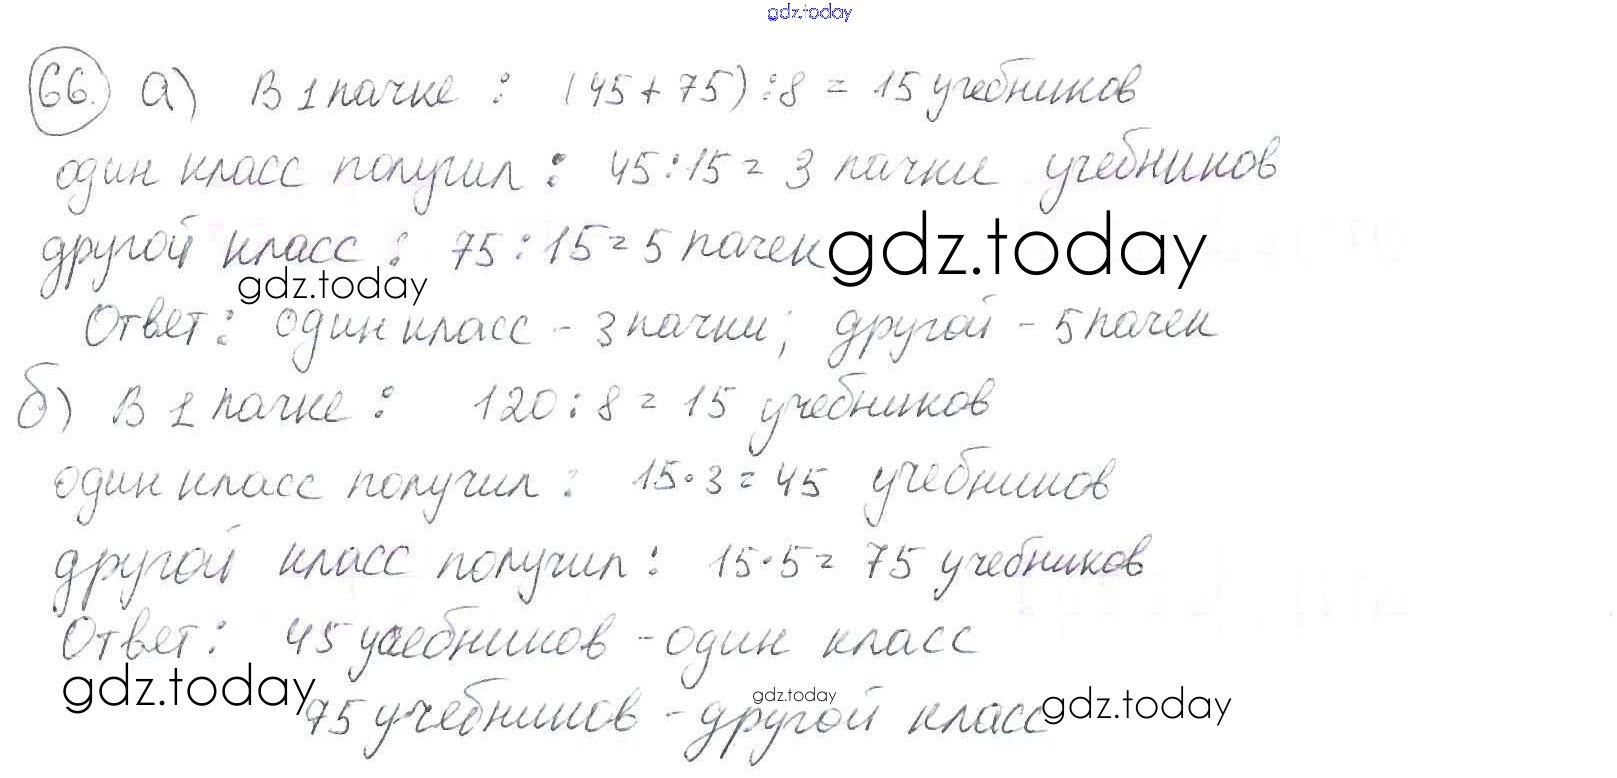 gdz.today
66. а) В 1 пачке : (45 + 75) : 8 = 15 учебников
один класс получил : 45 : 15 = 3 пачки учебников
другой класс : 75 : 15 = 5 пачек gdz.today
gdz.today
Ответ : один класс - 3 пачки ; другой - 5 пачек
б) В 1 пачке : 120 : 8 = 15 учебников
один класс получил : 15 · 3 = 45 учебников
другой класс получил : 15 · 5 = 75 учебников
Ответ : 45 учебников - один класс
gdz.today
75 учебников - другой класс gdz.today
gdz.today